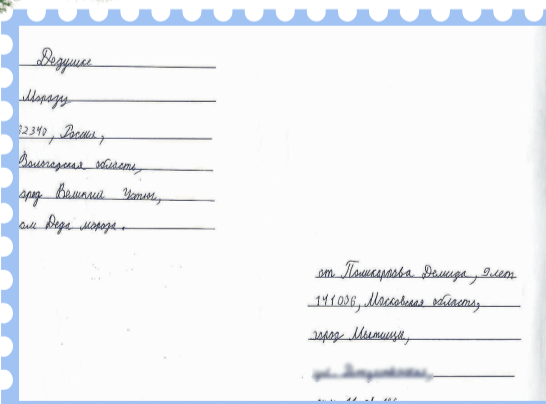 Дедушке
Морозу
62340, Россия,
Вологодская область,
ород Великий Устюг,
ом Деда мороза.
от Поликарпова Демида, 9 лет
141036, Московская область,
город Мытищи,